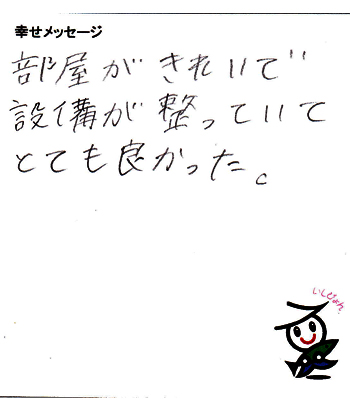 幸せメッセージ
部屋がきれいで
設備が整っていて
とても良かった。
いしぴょん